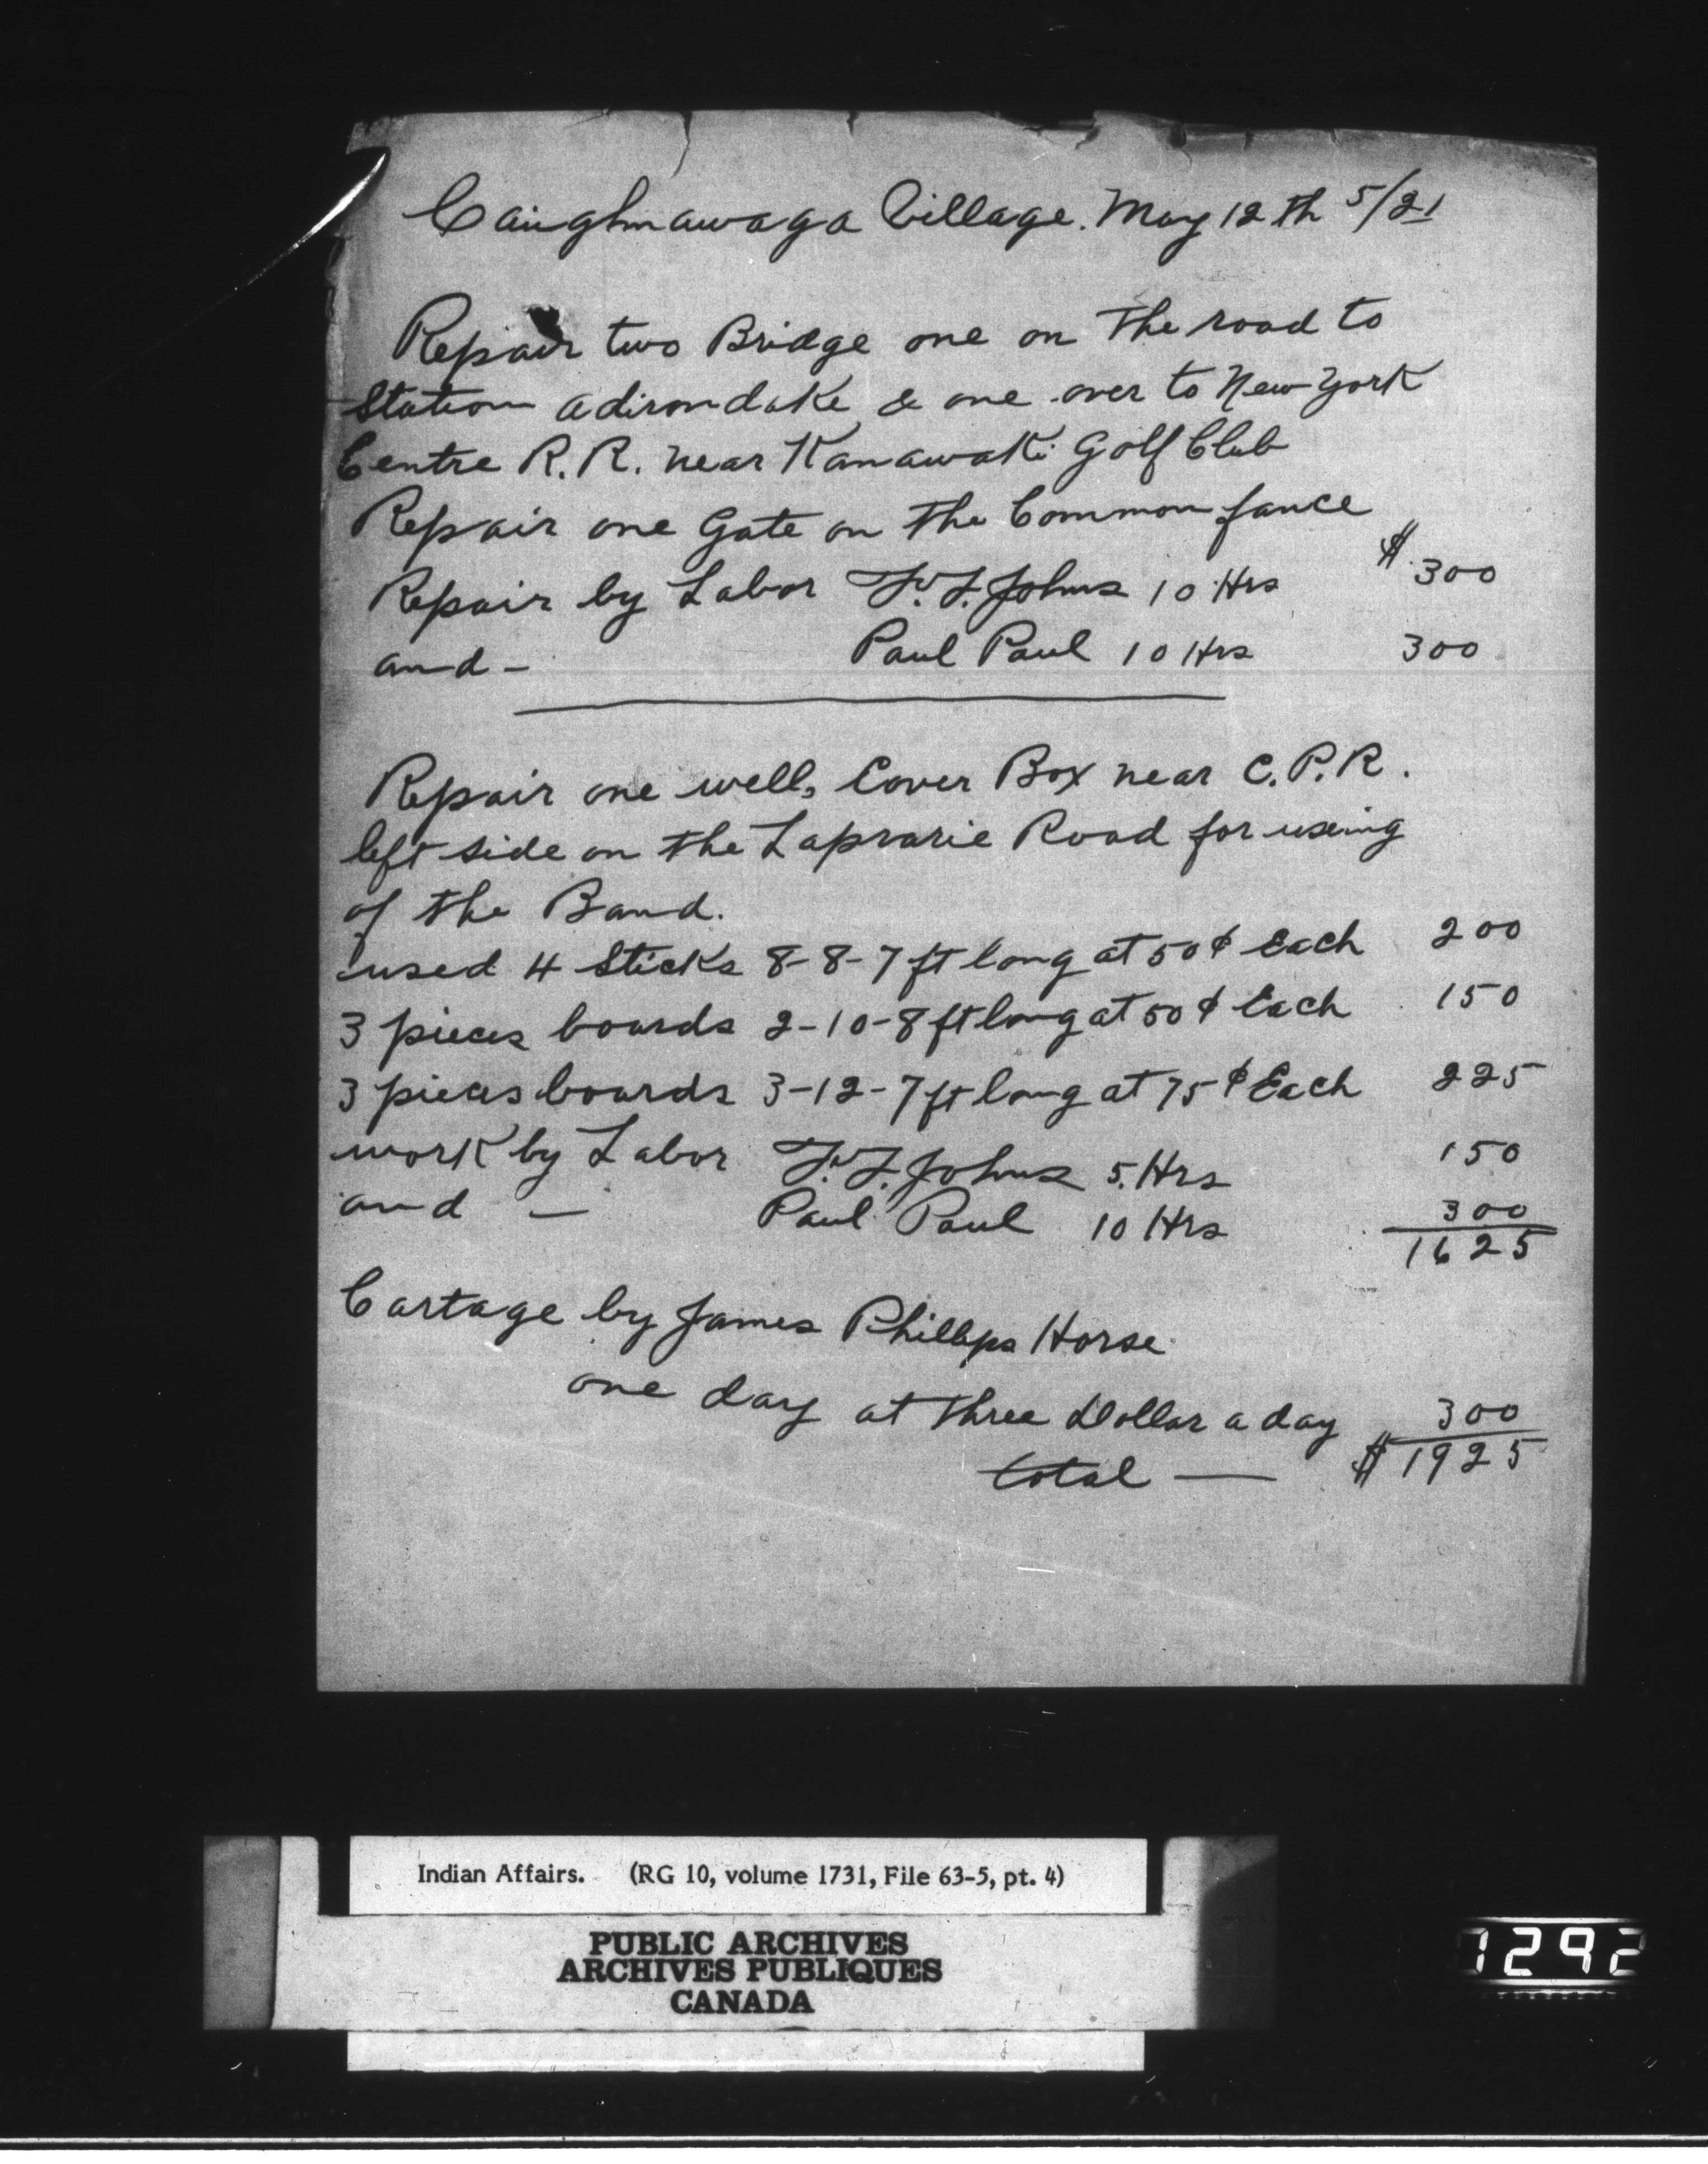 Caughnawaga Village. May 12 th 5/21
Repair two Bridge one on The road to
Station adirondake & one over to New York
Centre R.R. near Kanawaki Golf Club
Repair one Gate on The Common fance
Repair by Labor F. J. Johns 10 Hrs $ 300
and - Paul Paul 10 Hrs 300
Repair one well, Cover Box near C.P.R.
left side on the Laprarie Road for useing
of the Band.
used 4 Sticks 8-8-7 ft long at 50¢ Each 200
3 pieces boards 2-10-8 ft long at 50¢ Each 150
3 pieces boards 3-12-7 ft long at 75¢ Each 225
work by Labor F. J. Johns 5. Hrs 150
and — Paul Paul 10 Hrs 300
1625
Cartage by James Phillips Horse
one day at three Dollar a day 300
total — $ 1925
Indian Affairs. (RG 10, volume 1731, File 63-5, pt. 4)
PUBLIC ARCHIVES
ARCHIVES PUBLIQUES
CANADA
1292